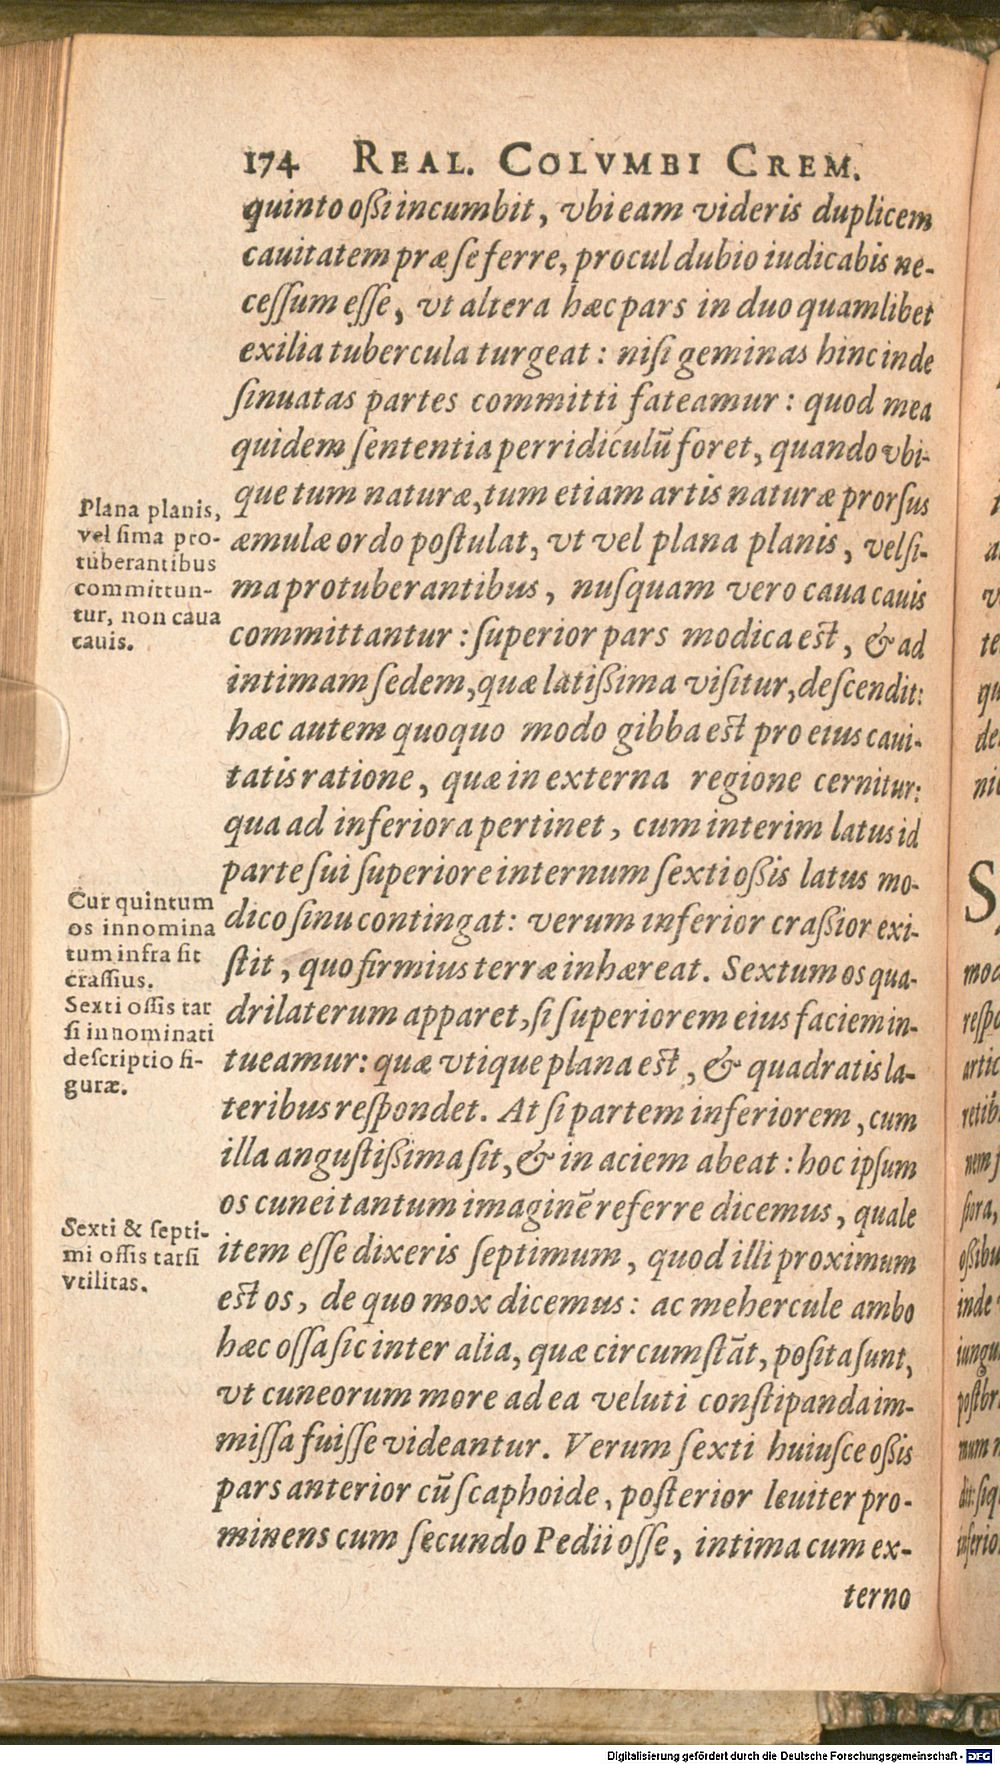 174 REAL. COLVMBI CREM.
quinto oßi incumbit, vbi eam videris duplicem
cauitatem præ se ferre, procul dubio iudicabis ne-
cessum esse, vt altera hæc pars in duo quamlibet
exilia tubercula turgeat: nisi geminas hinc inde
sinuatas partes committi fateamur: quod mea
quidem sententia perridiculū foret, quando vbi-
que tum naturæ, tum etiam artis naturæ prorsus
æmulæ ordo postulat, vt vel plana planis, vel si-
ma protuberantibus, nusquam vero caua cauis
committantur: superior pars modica est, & ad
intimam sedem, quæ latißima visitur, descendit:
hæc autem quoquo modo gibba est pro eius caui-
tatis ratione, quæ in externa regione cernitur:
qua ad inferiora pertinet, cum interim latus id
parte sui superiore internum sexti oßis latus mo-
dico sinu contingat: verum inferior craßior exi-
stit, quo firmius terræ inhæreat. Sextum os qua-
drilaterum apparet, si superiorem eius faciem in-
tueamur: quæ vtique plana est, & quadratis la-
teribus respondet. At si partem inferiorem, cum
illa angustißima sit, & in aciem abeat: hoc ipsum
os cunei tantum imaginē referre dicemus, quale
item esse dixeris septimum, quod illi proximum
est os, de quo mox dicemus: ac mehercule ambo
hæc ossa sic inter alia, quæ circumstāt, posita sunt,
vt cuneorum more ad ea veluti constipanda im-
missa fuisse videantur. Verum sexti huiusce oßis
pars anterior cū scaphoide, posterior leuiter pro-
minens cum secundo Pedii osse, intima cum ex-
terno
Plana planis,
vel sima pro-
tuberantibus
committun-
tur, non caua
cauis.
Cur quintum
os innomina
tum infra sit
crassius.
Sexti ossis tar
si innominati
descriptio fi-
guræ.
Sexti & septi-
mi ossis tarsi
vtilitas.
Digitalisierung gefördert durch die Deutsche Forschungsgemeinschaft - DFG